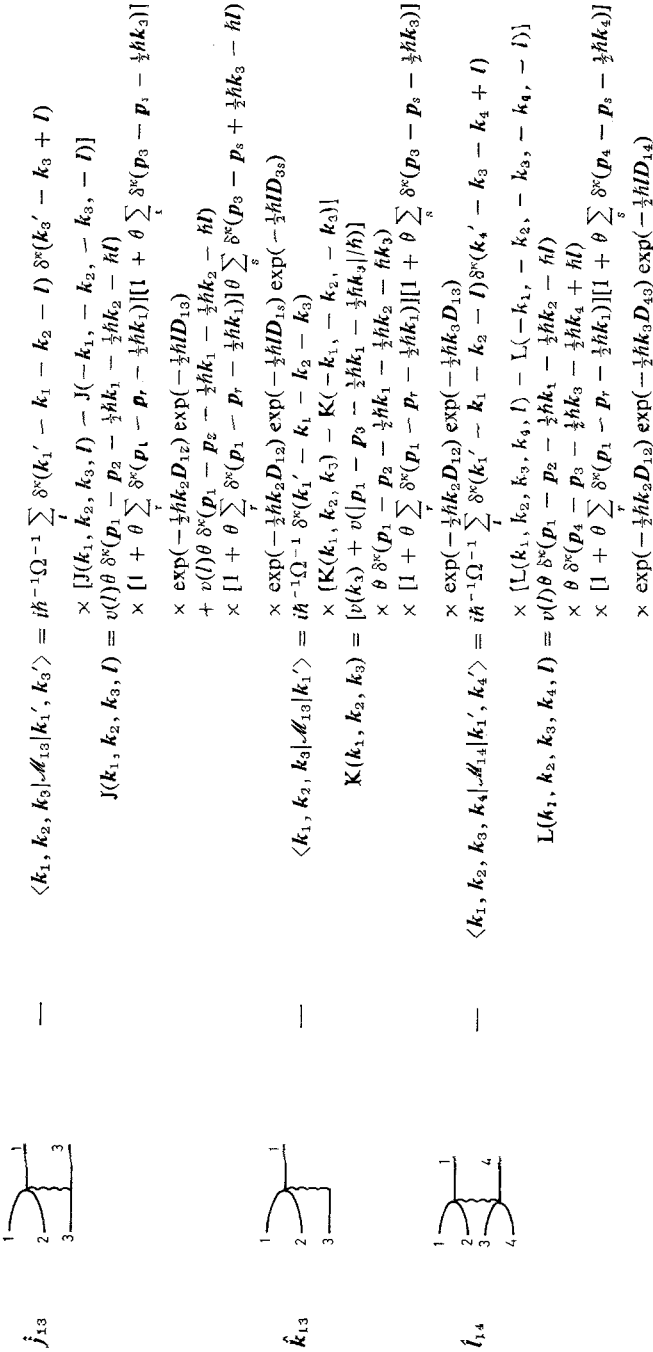 ĵ₁₃ 1 2 3 1 3 — ⟨k₁, k₂, k₃|ℳ₁₃|k₁′, k₃′⟩ = iħ⁻¹Ω⁻¹ ∑ₗ δᵏ(k₁′ − k₁ − k₂ − l) δᵏ(k₃′ − k₃ + l)
× [J(k₁, k₂, k₃, l) − J(−k₁, − k₂, − k₃, − l)]
J(k₁, k₂, k₃, l) = v(l)θ δᵏ(p₁ − p₂ − ½ħk₁ − ½ħk₂ − ħl)
× [1 + θ ∑ᵣ δᵏ(p₁ − pᵣ − ½ħk₁)][1 + θ ∑ₛ δᵏ(p₃ − pₛ − ½ħk₃)]
× exp(−½ħk₂D₁₂) exp(−½ħlD₁₃)
+ v(l)θ δᵏ(p₁ − p₂ − ½ħk₁ − ½ħk₂ − ħl)
× [1 + θ ∑ᵣ δᵏ(p₁ − pᵣ − ½ħk₁)]θ ∑ₛ δᵏ(p₃ − pₛ + ½ħk₃ − ħl)
× exp(−½ħk₂D₁₂) exp(−½ħlD₁ₛ) exp(−½ħlD₃ₛ)
k̂₁₃ 1 2 3 1 — ⟨k₁, k₂, k₃|ℳ₁₃|k₁′⟩ = iħ⁻¹Ω⁻¹ δᵏ(k₁′ − k₁ − k₂ − k₃)
× [K(k₁, k₂, k₃) − K(−k₁, − k₂, − k₃)]
K(k₁, k₂, k₃) = [v(k₃) + v(|p₁ − p₃ − ½ħk₁ − ½ħk₃|/ħ)]
× θ δᵏ(p₁ − p₂ − ½ħk₁ − ½ħk₂ − ħk₃)
× [1 + θ ∑ᵣ δᵏ(p₁ − pᵣ − ½ħk₁)][1 + θ ∑ₛ δᵏ(p₃ − pₛ − ½ħk₃)]
× exp(−½ħk₂D₁₂) exp(−½ħk₃D₁₃)
l̂₁₄ 1 2 3 4 1 4 — ⟨k₁, k₂, k₃, k₄|ℳ₁₄|k₁′, k₄′⟩ = iħ⁻¹Ω⁻¹ ∑ₗ δᵏ(k₁′ − k₁ − k₂ − l)δᵏ(k₄′ − k₃ − k₄ + l)
× [L(k₁, k₂, k₃, k₄, l) − L(−k₁, − k₂, − k₃, − k₄, − l)]
L(k₁, k₂, k₃, k₄, l) = v(l)θ δᵏ(p₁ − p₂ − ½ħk₁ − ½ħk₂ − ħl)
× θ δᵏ(p₄ − p₃ − ½ħk₃ − ½ħk₄ + ħl)
× [1 + θ ∑ᵣ δᵏ(p₁ − pᵣ − ½ħk₁)][1 + θ ∑ₛ δᵏ(p₄ − pₛ − ½ħk₄)]
× exp(−½ħk₂D₁₂) exp(−½ħk₃D₄₃) exp(−½ħlD₁₄)